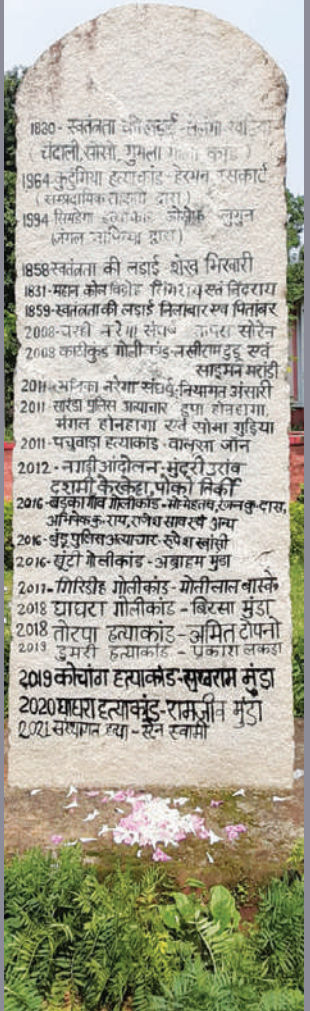 1830- स्वतंत्रता की लड़ाई
(चंदाली, सोसो, गुमला
1964- कुटुंगिया हत्याकांड- हेरमन रसकार्ट
(सम्प्रदायिक ताकतों द्वारा)
1994 सिमडेगा हत्याकांड जोसेफ लुगुन
(जंगल माफिया द्वारा)
1858 स्वतंत्रता की लडाई शेख भिखारी
1831- महान कोल विद्रोह सिंगराय एवं बिंदराय
1859- स्वतंत्रता की लडाई निलांबार एवं पितांबर
2008- नरेगा संघर्ष सोरेन
2008 काठीकुंड गोलीकांड- लखीराम टुडू एवं
साइमन मरांडी
2011- मनिका नरेगा संघर्ष- नियामत अंसारी
2011- सारंडा पुलिस अत्याचार रूपा होनहागा,
मंगल होनहागा एवं सोमा गुड़िया
2011- पचुवाड़ा हत्याकांड- वालसा जॉन
2012- नगड़ी आंदोलन- मुंदरी उरांव
दशमी केरकेट्टा, पोको तिर्की
2016- बड़कागांव गोलीकांड- मो मेहताब, रंजन कु. दास,
अभिषेक कु. राय, राजेश साव एवं अन्य
2016- बुंडू पुलिस अत्याचार- रुपेश स्वांसी
2016- खूंटी गोलीकांड- अब्राहम मुंडा
2017- गिरिडीह गोलीकांड- मोतीलाल बास्के
2018 घाघरा गोलीकांड- बिरसा मुंडा
2018 तोरपा हत्याकांड- अमित टोपनो
2019 डुमरी हत्याकांड- प्रकाश लकड़ा
2019 कोचांग हत्याकांड- सुखराम मुंडा
2020 घाघरा हत्याकांड- रामजीव मुंडा
2021 संस्थागत हत्या- स्टेन स्वामी